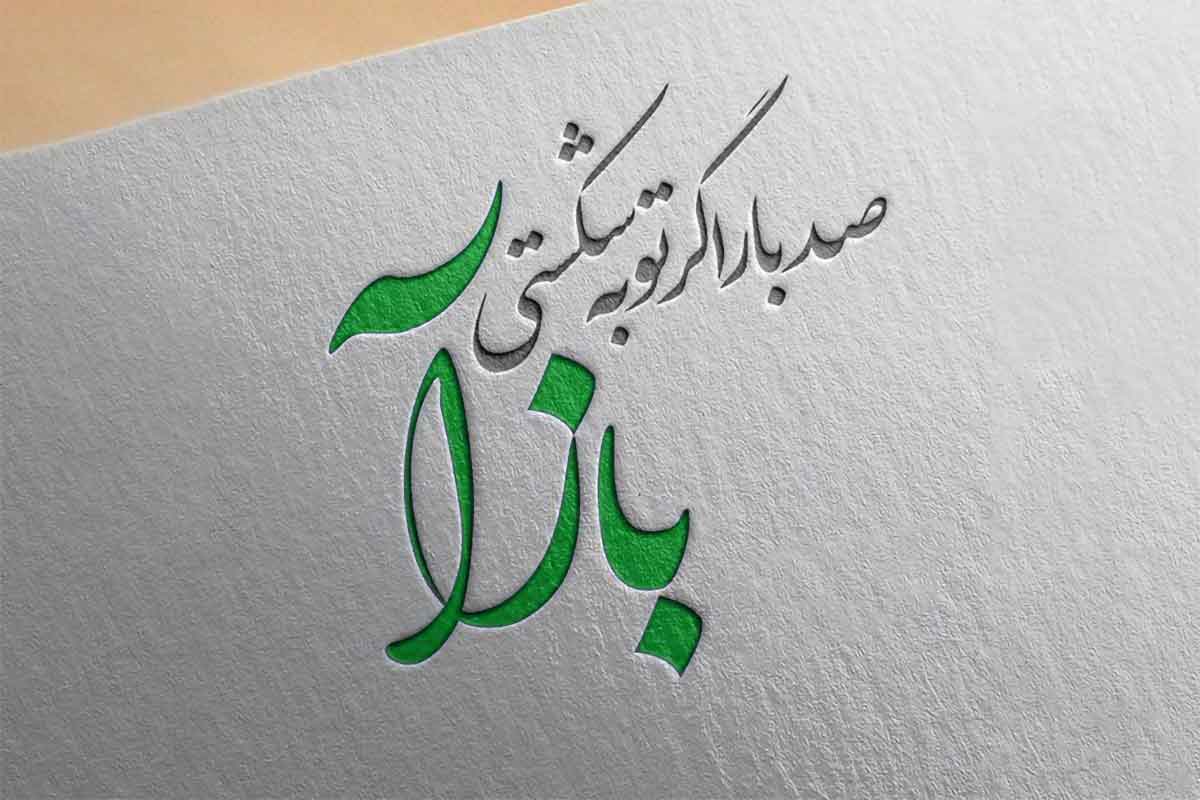 صد بار اگر توبه شکستی
بازآ